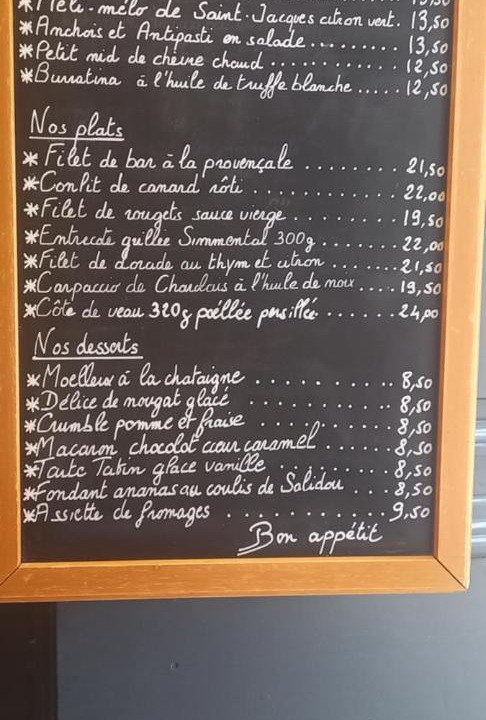 *Méli-mélo de Saint-Jacques citron vert. 13,50
*Anchois et Antipasti en salade......... 13,50
*Petit nid de chèvre chaud ........... 12,50
*Burratina à l'huile de truffe blanche ..... 12,50
Nos plats
*Filet de bar à la provençale ........ 21,50
*Confit de canard rôti ............ 22,00
*Filet de rougets sauce vierge ......... 19,50
*Entrecôte grillée Simmental 300g ....... 22,00
*Filet de dorade au thym et citron ....... 21,50
*Carpaccio de Charolais à l'huile de noix .... 19,50
*Côte de veau 320g poêllée persillée ....... 24,00
Nos desserts
*Moelleux à la chataigne ........... 8,50
*Délice de nougat glacé ............ 8,50
*Crumble pomme et fraise ........... 8,50
*Macaron chocolat cœur caramel ...... 8,50
*Tarte Tatin glace vanille ......... 8,50
*Fondant ananas au coulis de Salidou ... 8,50
*Assiette de fromages ............ 9,50
Bon appétit